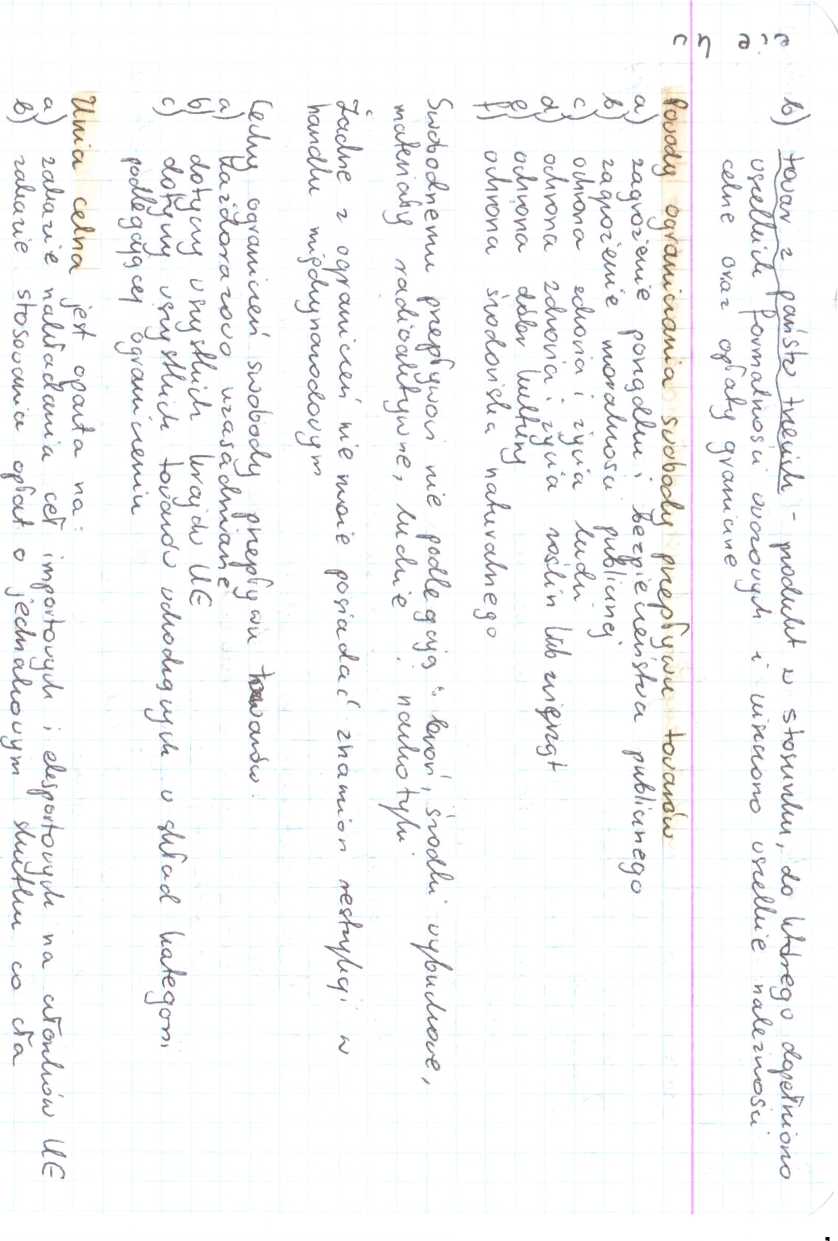 b) towar z państw trzecich - produkt w stosunku, do którego dopełniono
wszelkich formalności wwozowych i uiszczono wszelkie należności
celne oraz opłaty graniczne
Powody ograniczania swobody przepływu towarów
a) zagrożenie porządku i bezpieczeństwa publicznego
b) zagrożenie moralności publicznej
c) ochrona zdrowia i życia ludzi
d) ochrona zdrowia i życia roślin lub zwierząt
e) ochrona dóbr kultury
f) ochrona środowiska naturalnego
Swobodnemu przepływowi nie podlegają: broń, środki wybuchowe,
materiały radioaktywne, ludzie, narkotyki
Żadne z ograniczeń nie może posiadać znamion restrykcji w
handlu międzynarodowym
Cechy ograniczeń swobody przepływu towarów:
a) każdorazowo uzasadniane
b) dotyczy wszystkich krajów UE
c) dotyczy wszystkich towarów wchodzących w skład kategorii
podlegającej ograniczeniu
Unia celna jest oparta na:
a) zakazie nakładania ceł importowych i eksportowych na członków UE
b) zakazie stosowania opłat o jednakowym skutku co cła